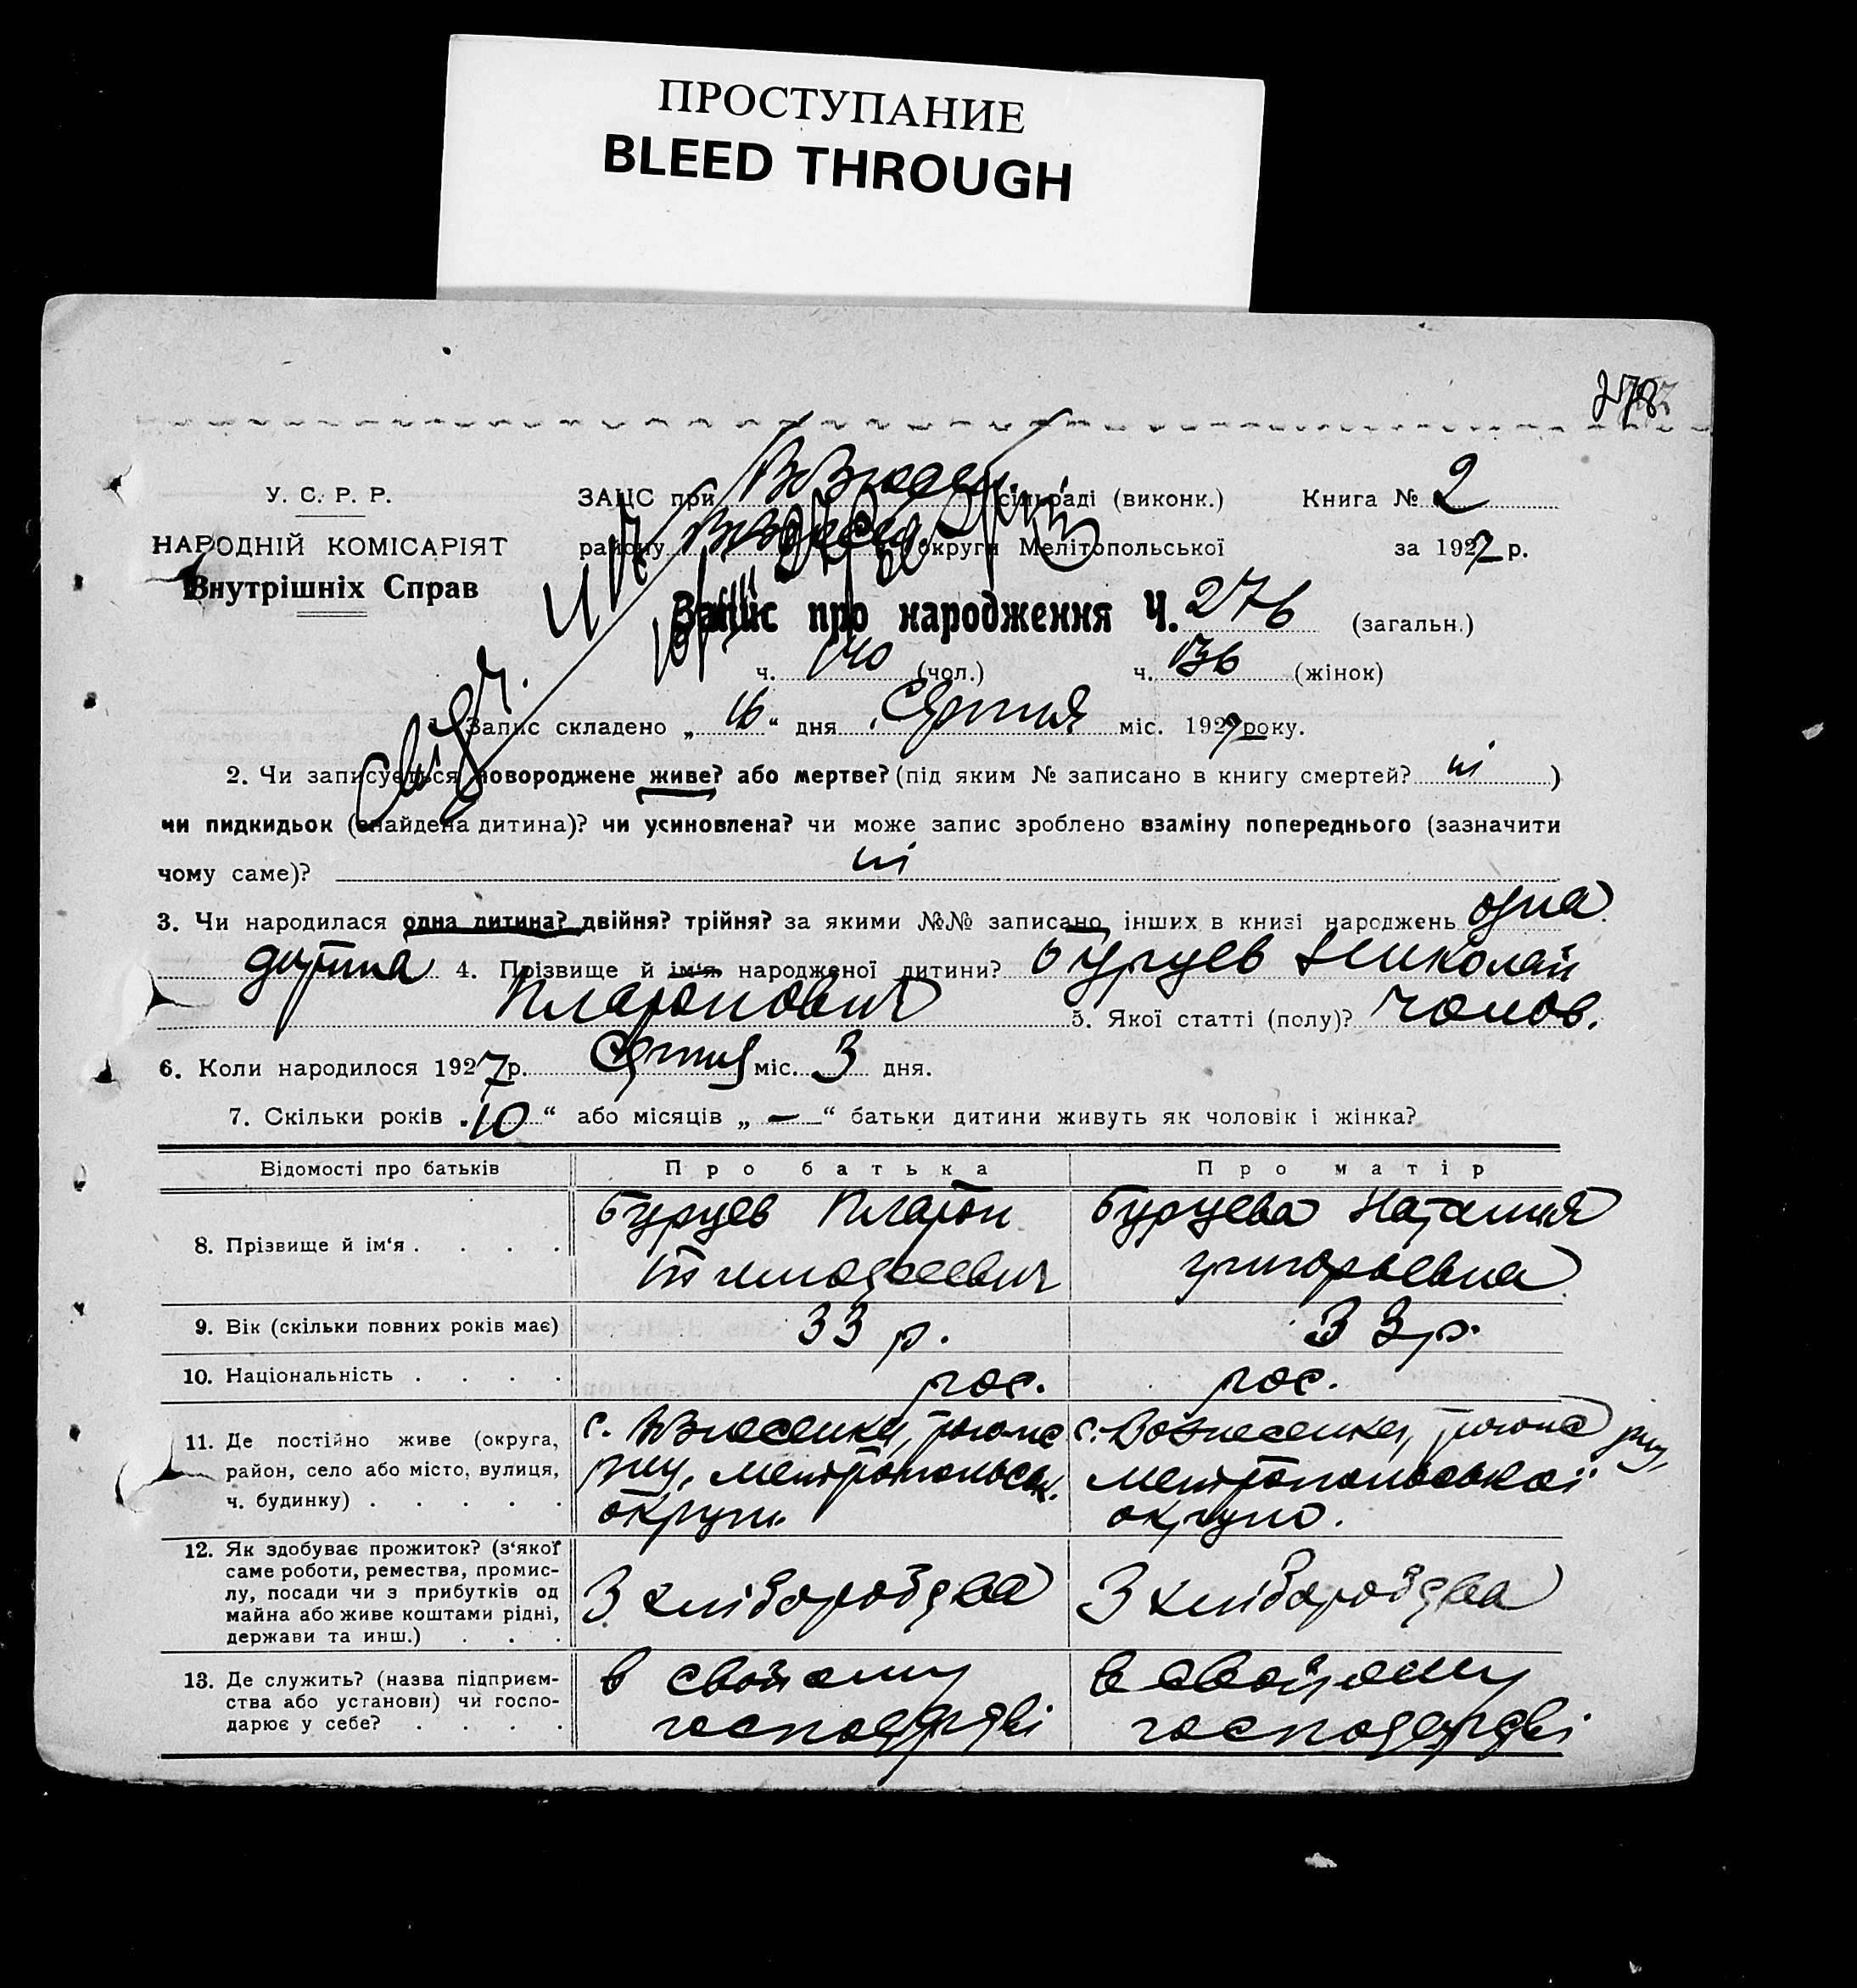 ПРОСТУПАНИЕ
BLEED THROUGH
278
У. С. Р. Р.
НАРОДНІЙ КОМІСАРІЯТ
Внутрішніх Справ
ЗАЦС при сільраді (виконк.) Книга № 2
району округи Мелітопольської за 1927 р.
Запис про народження Ч. 276 (загальн.)
ч. 140 (чол.) ч. 136 (жінок)
Запис складено „ 16 “ дня Серпня міс. 1927 року.
2. Чи записується новороджене живе? або мертве? (під яким № записано в книгу смертей? ні )
чи пидкидьок (знайдена дитина)? чи усиновлена? чи може запис зроблено взаміну попереднього (зазначити
чому саме)? ні
3. Чи народилася одна дитина? двійня? трійня? за якими №№ записано інших в книзі народжень одна
дитина 4. Прізвище й ім‘я народженої дитини? Бурцев Николай
Платонович 5. Якої статті (полу)? чолов.
6. Коли народилося 1927 р. Серпня міс. 3 дня.
7. Скільки років „ 10 “ або місяців „ — “ батьки дитини живуть як чоловік і жінка?
Відомості про батьків Про батька Про матір
8. Прізвище й ім‘я . . . . Бурцев Платон Тимофеевич Бурцева Наталия Григорьевна
9. Вік (скільки повних років має) 33 р. 33 р.
10. Національність . . . . рос. рос.
11. Де постійно живе (округа,
район, село або місто, вулиця,
ч. будинку) . . . . .
с. Вознесенка,
Мелітопольськ.
округи
с. Вознесенка,
Мелітопольської
округи.
12. Як здобуває прожиток? (з‘якої
саме роботи, ремества, промис-
лу, посади чи з прибутків од
майна або живе коштами рідні,
держави та инш.) . . .
З хліборобства З хліборобства
13. Де служить? (назва підприєм-
ства або установи) чи госпо-
дарює у себе? . . . .
в свойому
господарстві
в свойому
господарстві